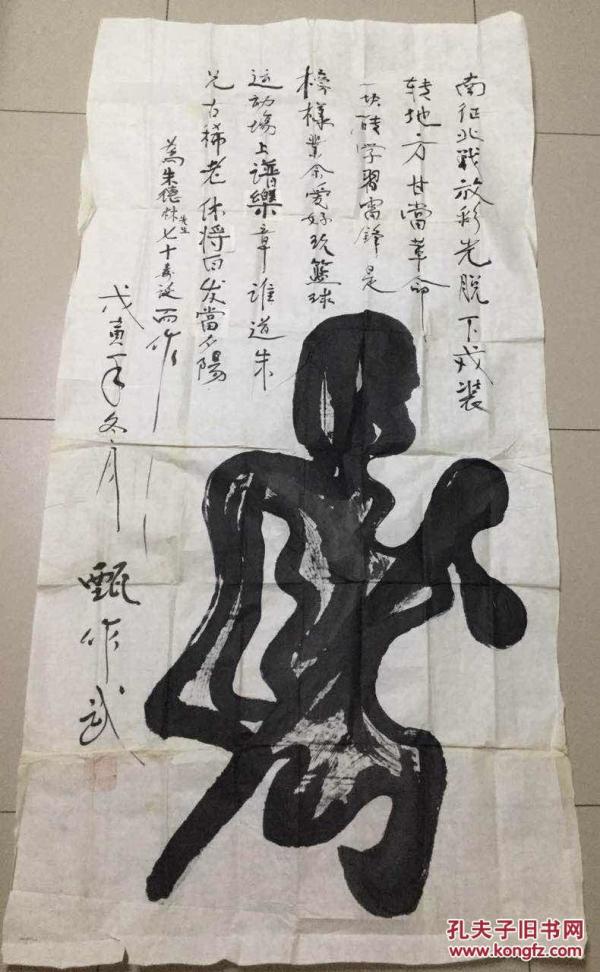 南征北戰放彩光脱下戎装
转地方甘當革命
一块砖学習雷鋒是
榜樣業余愛好玩籃球
运动場上譜樂章谁道朱
兄古稀老休将白发當夕陽
為朱德林先生七十寿诞而作
戊寅年冬月
甄作武
孔夫子旧书网
www.kongfz.com